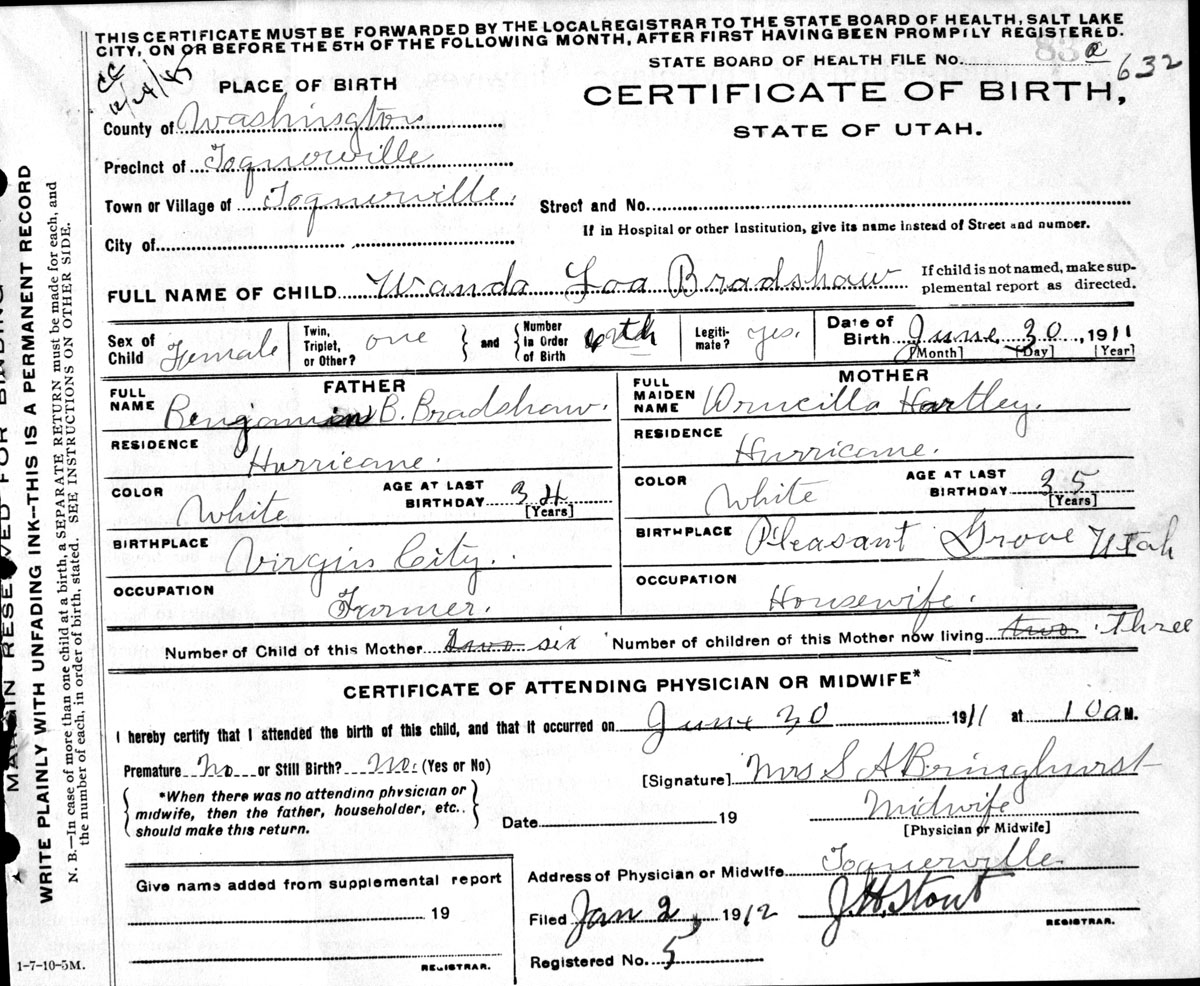 THIS CERTIFICATE MUST BE FORWARDED BY THE LOCAL REGISTRAR TO THE STATE BOARD OF HEALTH, SALT LAKE
CITY, ON OR BEFORE THE 5TH OF THE FOLLOWING MONTH, AFTER FIRST HAVING BEEN PROMPTLY REGISTERED.
STATE BOARD OF HEALTH FILE No. 83 a 632
CC
12/24/85
PLACE OF BIRTH
CERTIFICATE OF BIRTH,
STATE OF UTAH.
County of Washington
Precinct of Toquerville
Town or Village of Toquerville.
Street and No.
City of
If in Hospital or other Institution, give its name instead of Street and number.
FULL NAME OF CHILD Wanda Loa Bradshaw
If child is not named, make sup-
plemental report as directed.
Sex of Child Female
Twin, Triplet, or Other? one
and
Number in Order of Birth
Legiti-mate? yes.
Date of Birth June 30, 1911
[Month] [Day] [Year]
FATHER
FULL NAME Benjamin B. Bradshaw.
RESIDENCE
Hurricane.
COLOR White
AGE AT LAST BIRTHDAY 34
[Years]
BIRTHPLACE Virgin City.
OCCUPATION
Farmer.
MOTHER
FULL MAIDEN NAME Drucilla Hartley.
RESIDENCE
Hurricane.
COLOR White
AGE AT LAST BIRTHDAY 35
[Years]
BIRTHPLACE Pleasant Grove Utah
OCCUPATION
Housewife.
Number of Child of this Mother two six Number of children of this Mother now living two Three
CERTIFICATE OF ATTENDING PHYSICIAN OR MIDWIFE*
I hereby certify that I attended the birth of this child, and that it occurred on June 30 1911 at 10 a M.
Premature No or Still Birth? No. (Yes or No)
[Signature] Mrs S A Bringhurst
*When there was no attending physician or
midwife, then the father, householder, etc..
should make this return.
Midwife
Date 19
[Physician or Midwife]
Address of Physician or Midwife Toquerville
Give name added from supplemental report
19
REGISTRAR.
Filed Jan 2, 1912 J.H. Stout
REGISTRAR.
Registered No. 5
1-7-10-5M.
MARGIN RESERVED FOR BINDING
WRITE PLAINLY WITH UNFADING INK--THIS IS A PERMANENT RECORD
N. B.—In case of more than one child at a birth, a SEPARATE RETURN must be made for each, and
the number of each, in order of birth, stated. SEE INSTRUCTIONS ON OTHER SIDE.